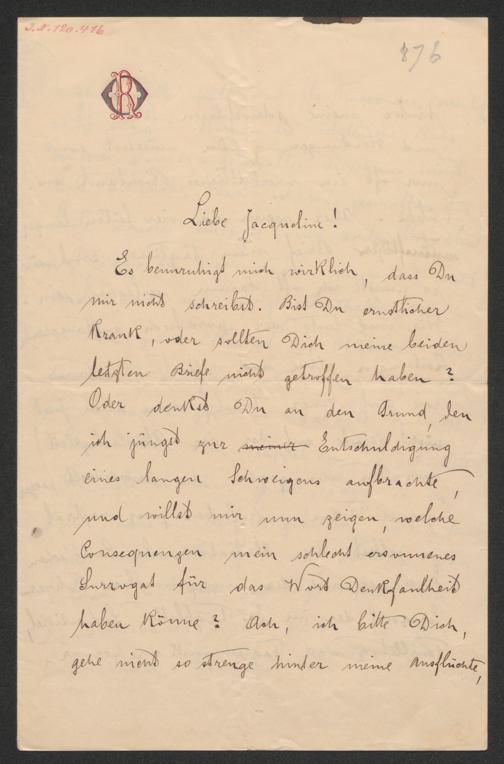 J.N. 120.416
876
Liebe Jacqueline!
Es beunruhigt mich wirklich, dass Du
mir nicht schreibst. Bist Du ernstlicher
Krank, oder sollten Dich meine beiden
letzten Briefe nicht getroffen haben?
Oder denkst Du an den Grund, den
ich jüngst zur meiner Entschuldigung
eines langen Schweigens aufbrachte,
und willst mir nun zeigen, welche
Consequenzen mein schlecht ersonnenes
Surrogat für das Wort Denkfaulheit
haben könne? Ach, ich bitte Dich,
gehe nicht so strenge hinter meine Ausflüchte,